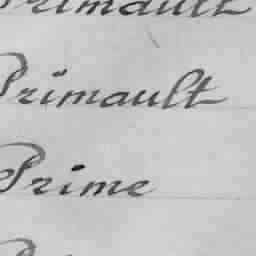 Primault
Primault
Prime